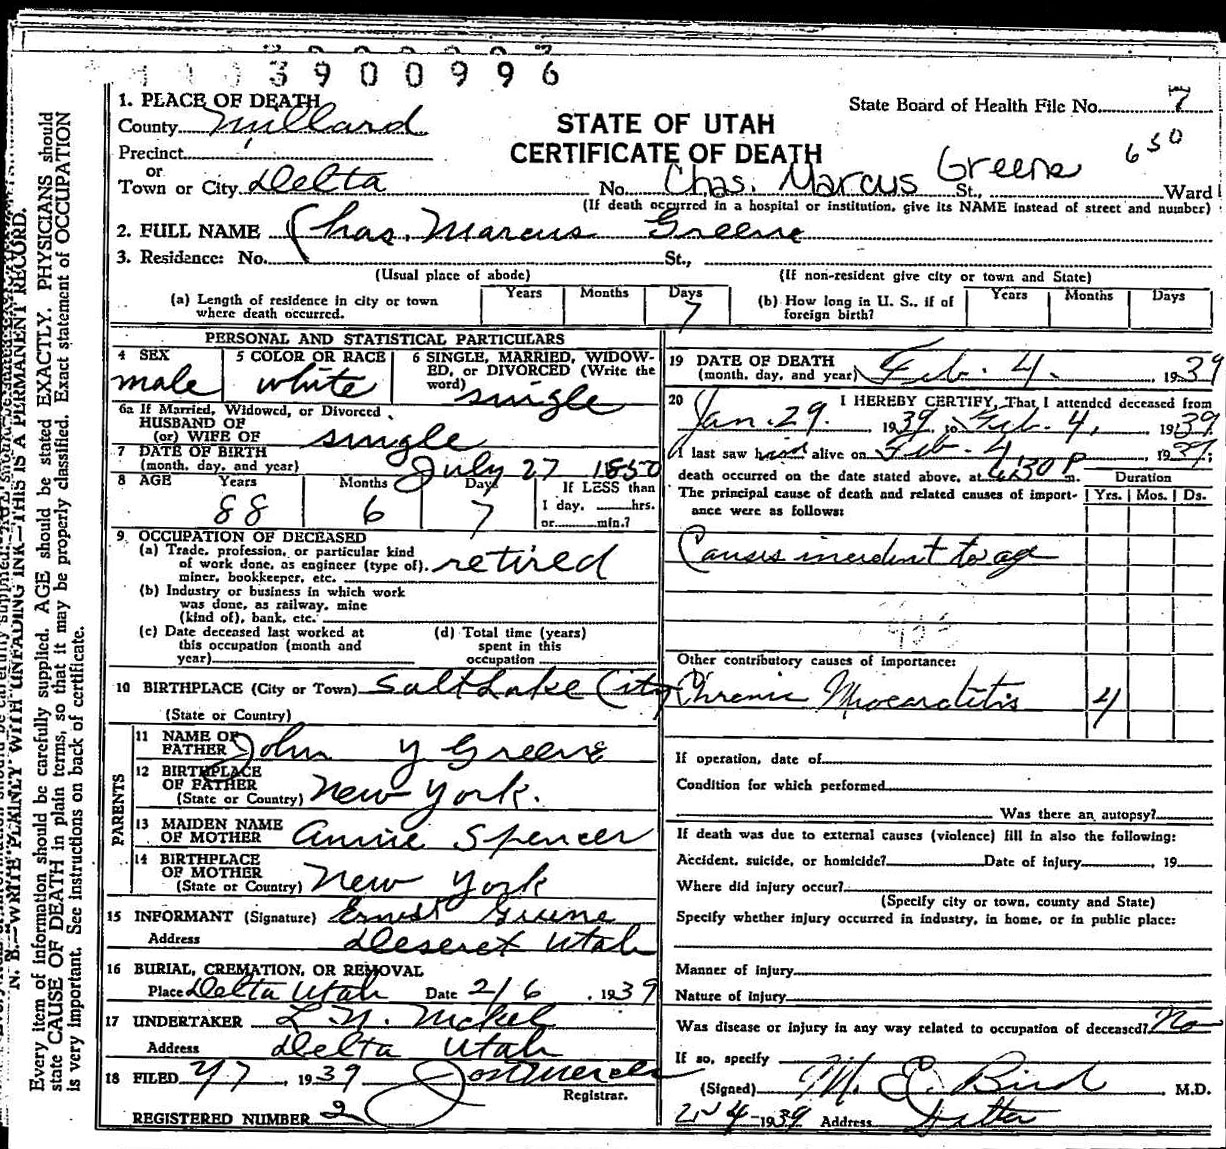 3900996
1. PLACE OF DEATH
County Millard
Precinct
or
Town or City Delta
State Board of Health File No. 7
STATE OF UTAH
CERTIFICATE OF DEATH
650
No. Chas. Marcus Greene St., Ward
(If death occurred in a hospital or institution, give its NAME instead of street and number)
2. FULL NAME Chas. Marcus Greene
3. Residence: No. St.,
(Usual place of abode) (If non-resident give city or town and State)
(a) Length of residence in city or town where death occurred. Years Months Days 7
(b) How long in U. S., if of foreign birth? Years Months Days
PERSONAL AND STATISTICAL PARTICULARS
4 SEX male
5 COLOR OR RACE white
6 SINGLE, MARRIED, WIDOWED, or DIVORCED (Write the word) single
6a If Married, Widowed, or Divorced
HUSBAND OF
(or) WIFE OF single
7 DATE OF BIRTH
(month, day, and year) July 27 1850
8 AGE Years 88 Months 6 Days 7
If LESS than
1 day, hrs.
or min.?
9. OCCUPATION OF DECEASED
(a) Trade, profession, or particular kind
of work done, as engineer (type of), retired
miner, bookkeeper, etc.
(b) Industry or business in which work
was done, as railway, mine
(kind of), bank, etc.
(c) Date deceased last worked at
this occupation (month and
year)
(d) Total time (years)
spent in this
occupation
10 BIRTHPLACE (City or Town) Salt Lake City
(State or Country)
PARENTS
11 NAME OF
FATHER John Y Greene
12 BIRTHPLACE
OF FATHER
(State or Country) New York.
13 MAIDEN NAME
OF MOTHER Annie Spencer
14 BIRTHPLACE
OF MOTHER
(State or Country) New York
15 INFORMANT (Signature) Ernest Greene
Address Deseret Utah
16 BURIAL, CREMATION, OR REMOVAL
Place Delta Utah Date 2/6, 1939
17 UNDERTAKER L. N. Nickel
Address Delta Utah
18 FILED 2/7, 1939
Registrar.
REGISTERED NUMBER 2
19 DATE OF DEATH
(month, day, and year) Feb. 4. , 1939
20 I HEREBY CERTIFY, That I attended deceased from
Jan. 29. 1939, to Feb. 4, 1939
I last saw him alive on Feb. 4, 1939;
death occurred on the date stated above, at 6:30 P m.
Duration
Yrs. Mos. Ds.
The principal cause of death and related causes of importance were as follows:
Causes incident to age
Other contributory causes of importance:
Chronic Myocarditis 4
If operation, date of
Condition for which performed
Was there an autopsy?
If death was due to external causes (violence) fill in also the following:
Accident, suicide, or homicide? Date of injury , 19
Where did injury occur?
(Specify city or town, county and State)
Specify whether injury occurred in industry, in home, or in public place:
Manner of injury
Nature of injury
Was disease or injury in any way related to occupation of deceased? No
If so, specify
(Signed) M. E. Bird , M.D.
4 1939 Address Delta
N. B.—WRITE PLAINLY WITH UNFADING INK—THIS IS A PERMANENT RECORD.
Every item of information should be carefully supplied. AGE should be stated EXACTLY. PHYSICIANS should
state CAUSE OF DEATH in plain terms, so that it may be properly classified. Exact statement of OCCUPATION
is very important. See instructions on back of certificate.